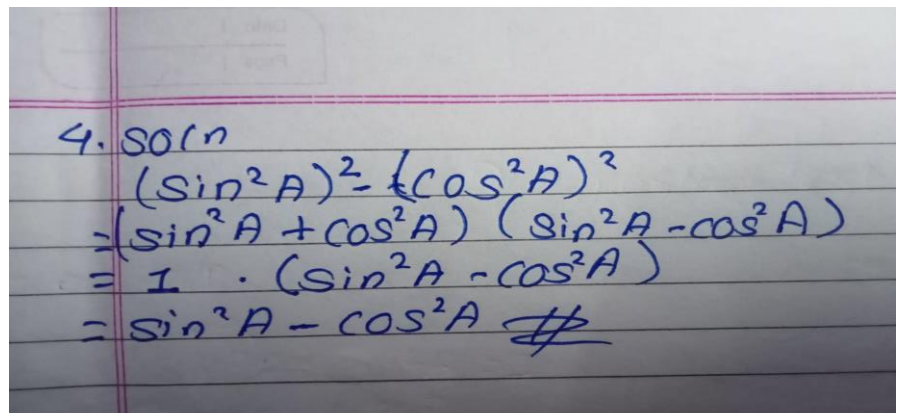 4. soln
(sin²A)² - (cos²A)²
=(sin²A + cos²A) (sin²A - cos²A)
= 1 . (sin²A - cos²A)
= sin²A - cos²A #